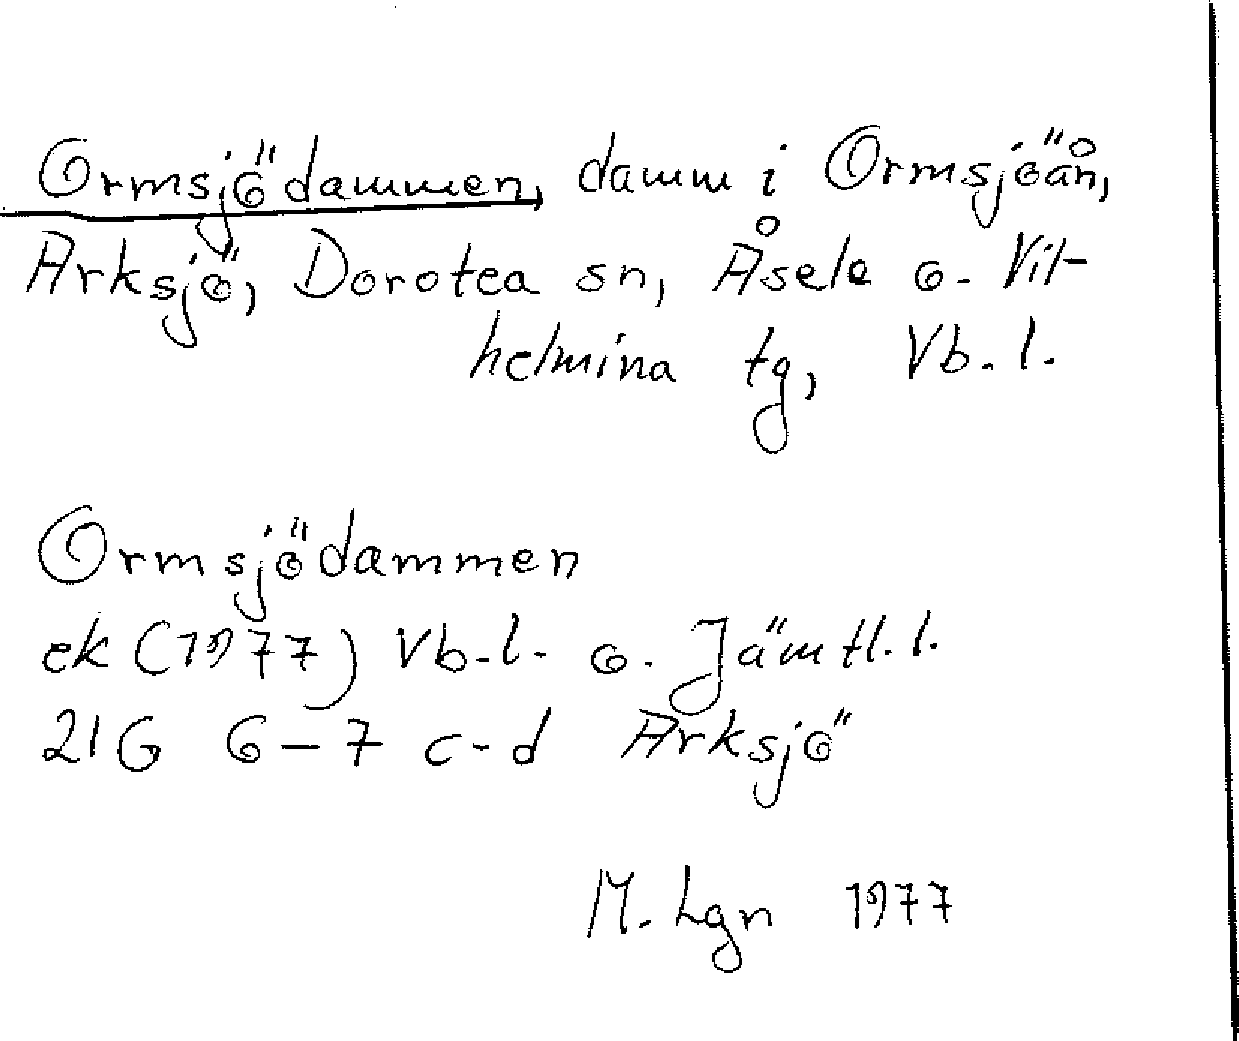 Ormsjödammen, damm i Ormsjöån,
Arksjö, Dorotea sn, Åsele o. Vil-
helmina tg, Vb. l.
Ormsjödammen
ek (1977) Vb. l. o. Jämtl. l.
21G 6-7 c-d Arksjö
M. Lgn 1977